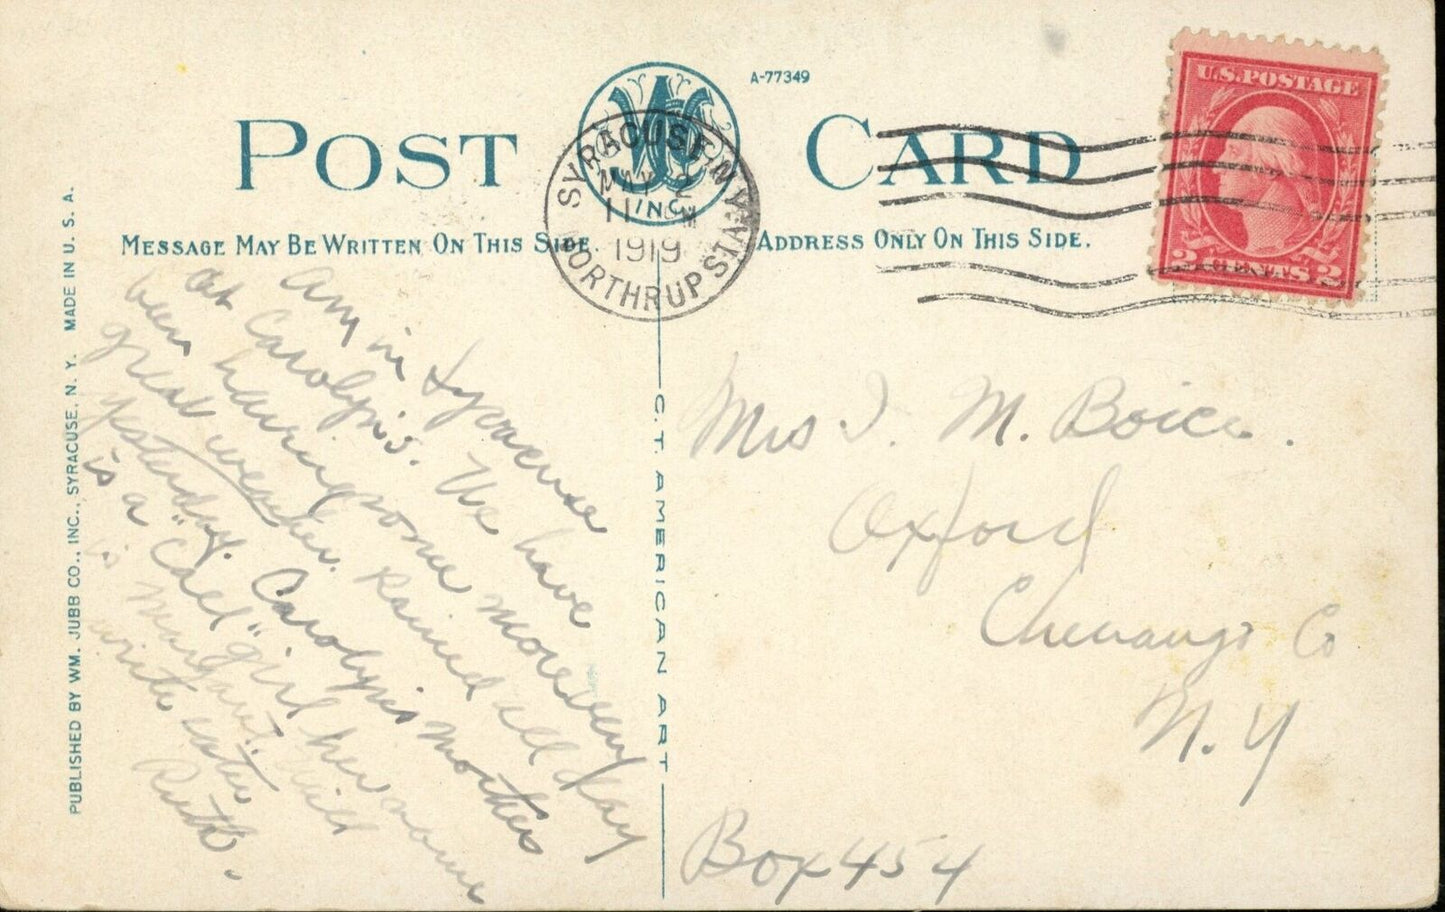 A-77349
POST CARD
INC
SYRACUSE, N.Y.
MAY 2
11 M
1919
NORTHRUP STA.
U.S. POSTAGE
2 CENTS 2
MESSAGE MAY BE WRITTEN ON THIS SIDE.
ADDRESS ONLY ON THIS SIDE.
PUBLISHED BY WM. JUBB CO., INC., SYRACUSE, N. Y. MADE IN U. S. A.
C.T. AMERICAN ART
Am in Syracuse
at Carolyn's. We have
been having some
great weather. Rained all day
yesterday. Carolyn's mother
is a "Call" girl her name
is Margaret. Will
write later
Ruth.
Mrs I. M. Boice.
Oxford
Chenango Co
N.Y
Box 454